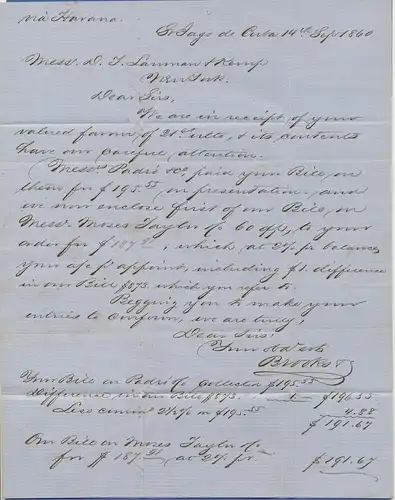 via Havana.
St Jago de Cuba 14th Sep 1860
Messrs. D. T. Lanman & Kemp
New York.
Dear Sirs,
We are in receipt of your
valued favour of 21st ulto, & its contents
have our careful attention.
Messrs Padró &Co paid your Bill on
them for $195.55 on presentation, and
we now enclose first of our Bill, on
Messrs. Moses Taylor & Co 60 d/s, to your
order for $187.91, which, at 2% pr balances
your a/c pr appoint, including $1. difference
in our Bill $873. which you refer to.
Begging you to make your
entries to conform, we are truly,
Dear Sirs:
Your obdt svts
Brooks &Co
Your Bill on Padró &Co collected $195.55
Difference in our Bill $873. 1 " $196.55
Less commn 2½% on $195.55 4.88
$191.67
Our Bill on Moses Taylor &Co
for $187.91 at 2% pr. $191.67